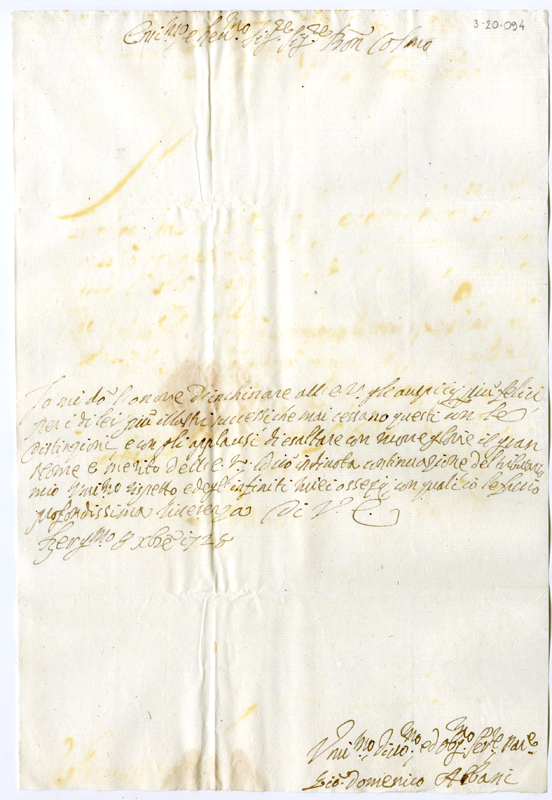 3-20-094
Emi:mo e Rev:mo Sig:re Sig:re Pron Col:mo
Io mi dò l'onore d'inchinare all' E. V. gli auspicij più felici
per i di lei più illustri successi che mai cessano questi con le
distinzioni e con gli applausi di esaltare con nuove glorie il gran
Nome e merito dell' E. V. Ciò in divota continuazione del
mio Umi:mo rispetto e degl' infiniti miei ossequi con quali io le faccio
profondissima riverenza Di V. E.
8 Xbre 1728
Umi:mo Divo:mo ed Obg:mo Ser:re
Gio: Domenico Albani